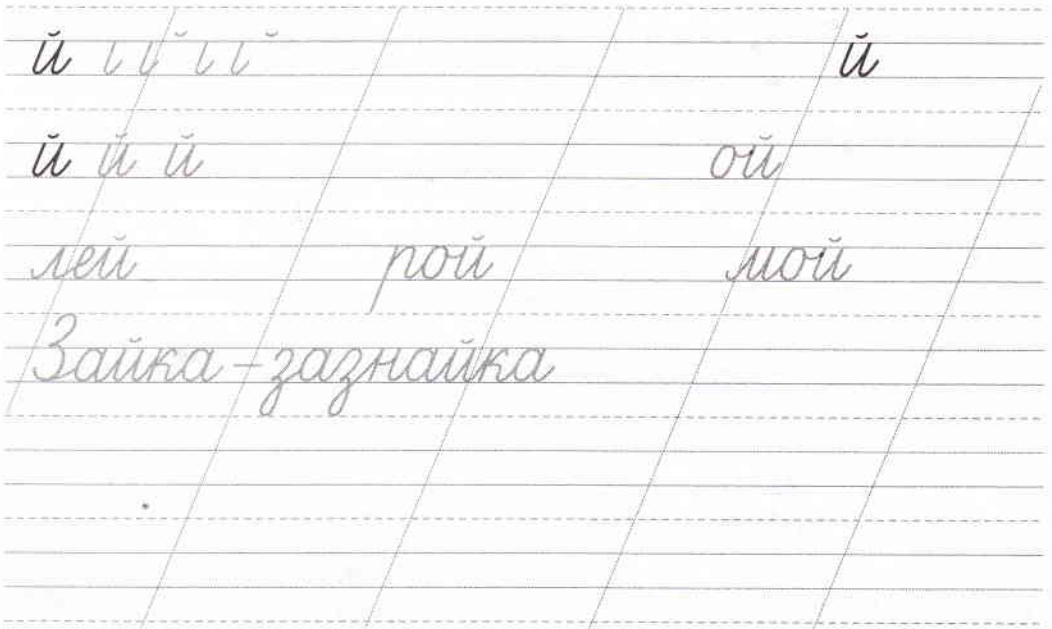 й й
й й й ой
лей рой мой
Зайка-зазнайка